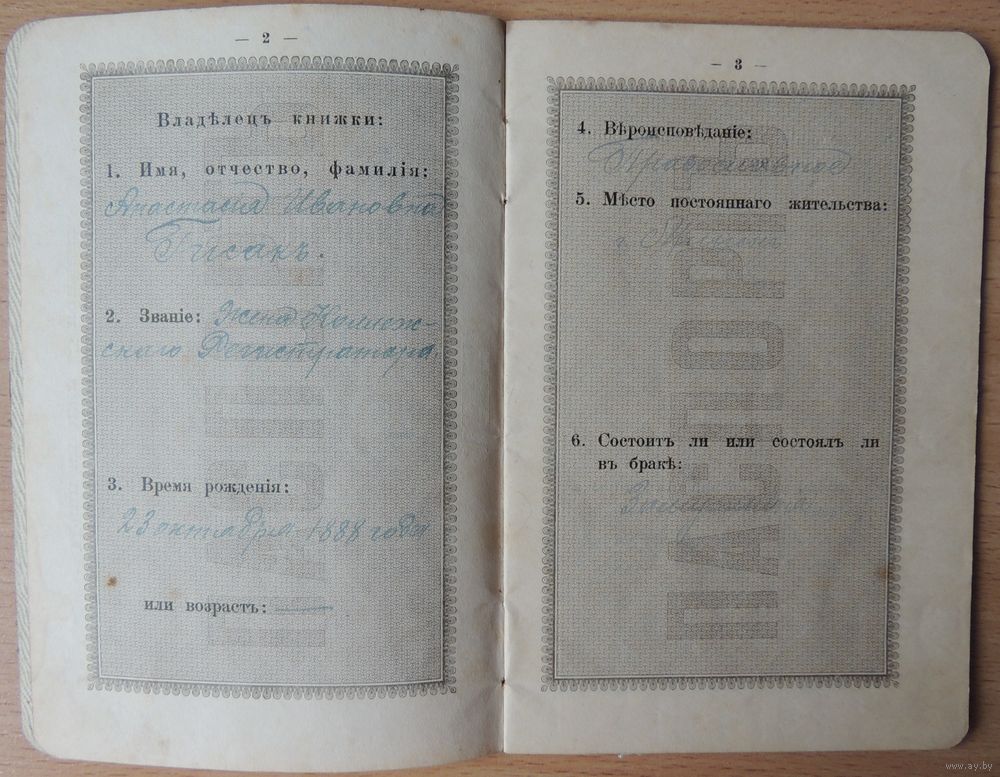 — 2 —
Владѣлецъ книжки:
1. Имя, отчество, фамилія:
Анастасія Ивановна
Гисакъ.
2. Званіе: Жена Коллеж-
скаго Регистратора
3. Время рожденія:
23 октября 1888 года
или возрастъ: —
— 3 —
4. Вѣроисповѣданіе:
Православное
5. Мѣсто постояннаго жительства:
г. Минскъ
6. Состоитъ ли или состоялъ ли
въ бракѣ:
Замужняя
ПАСПОРТЪ
www.ay.by